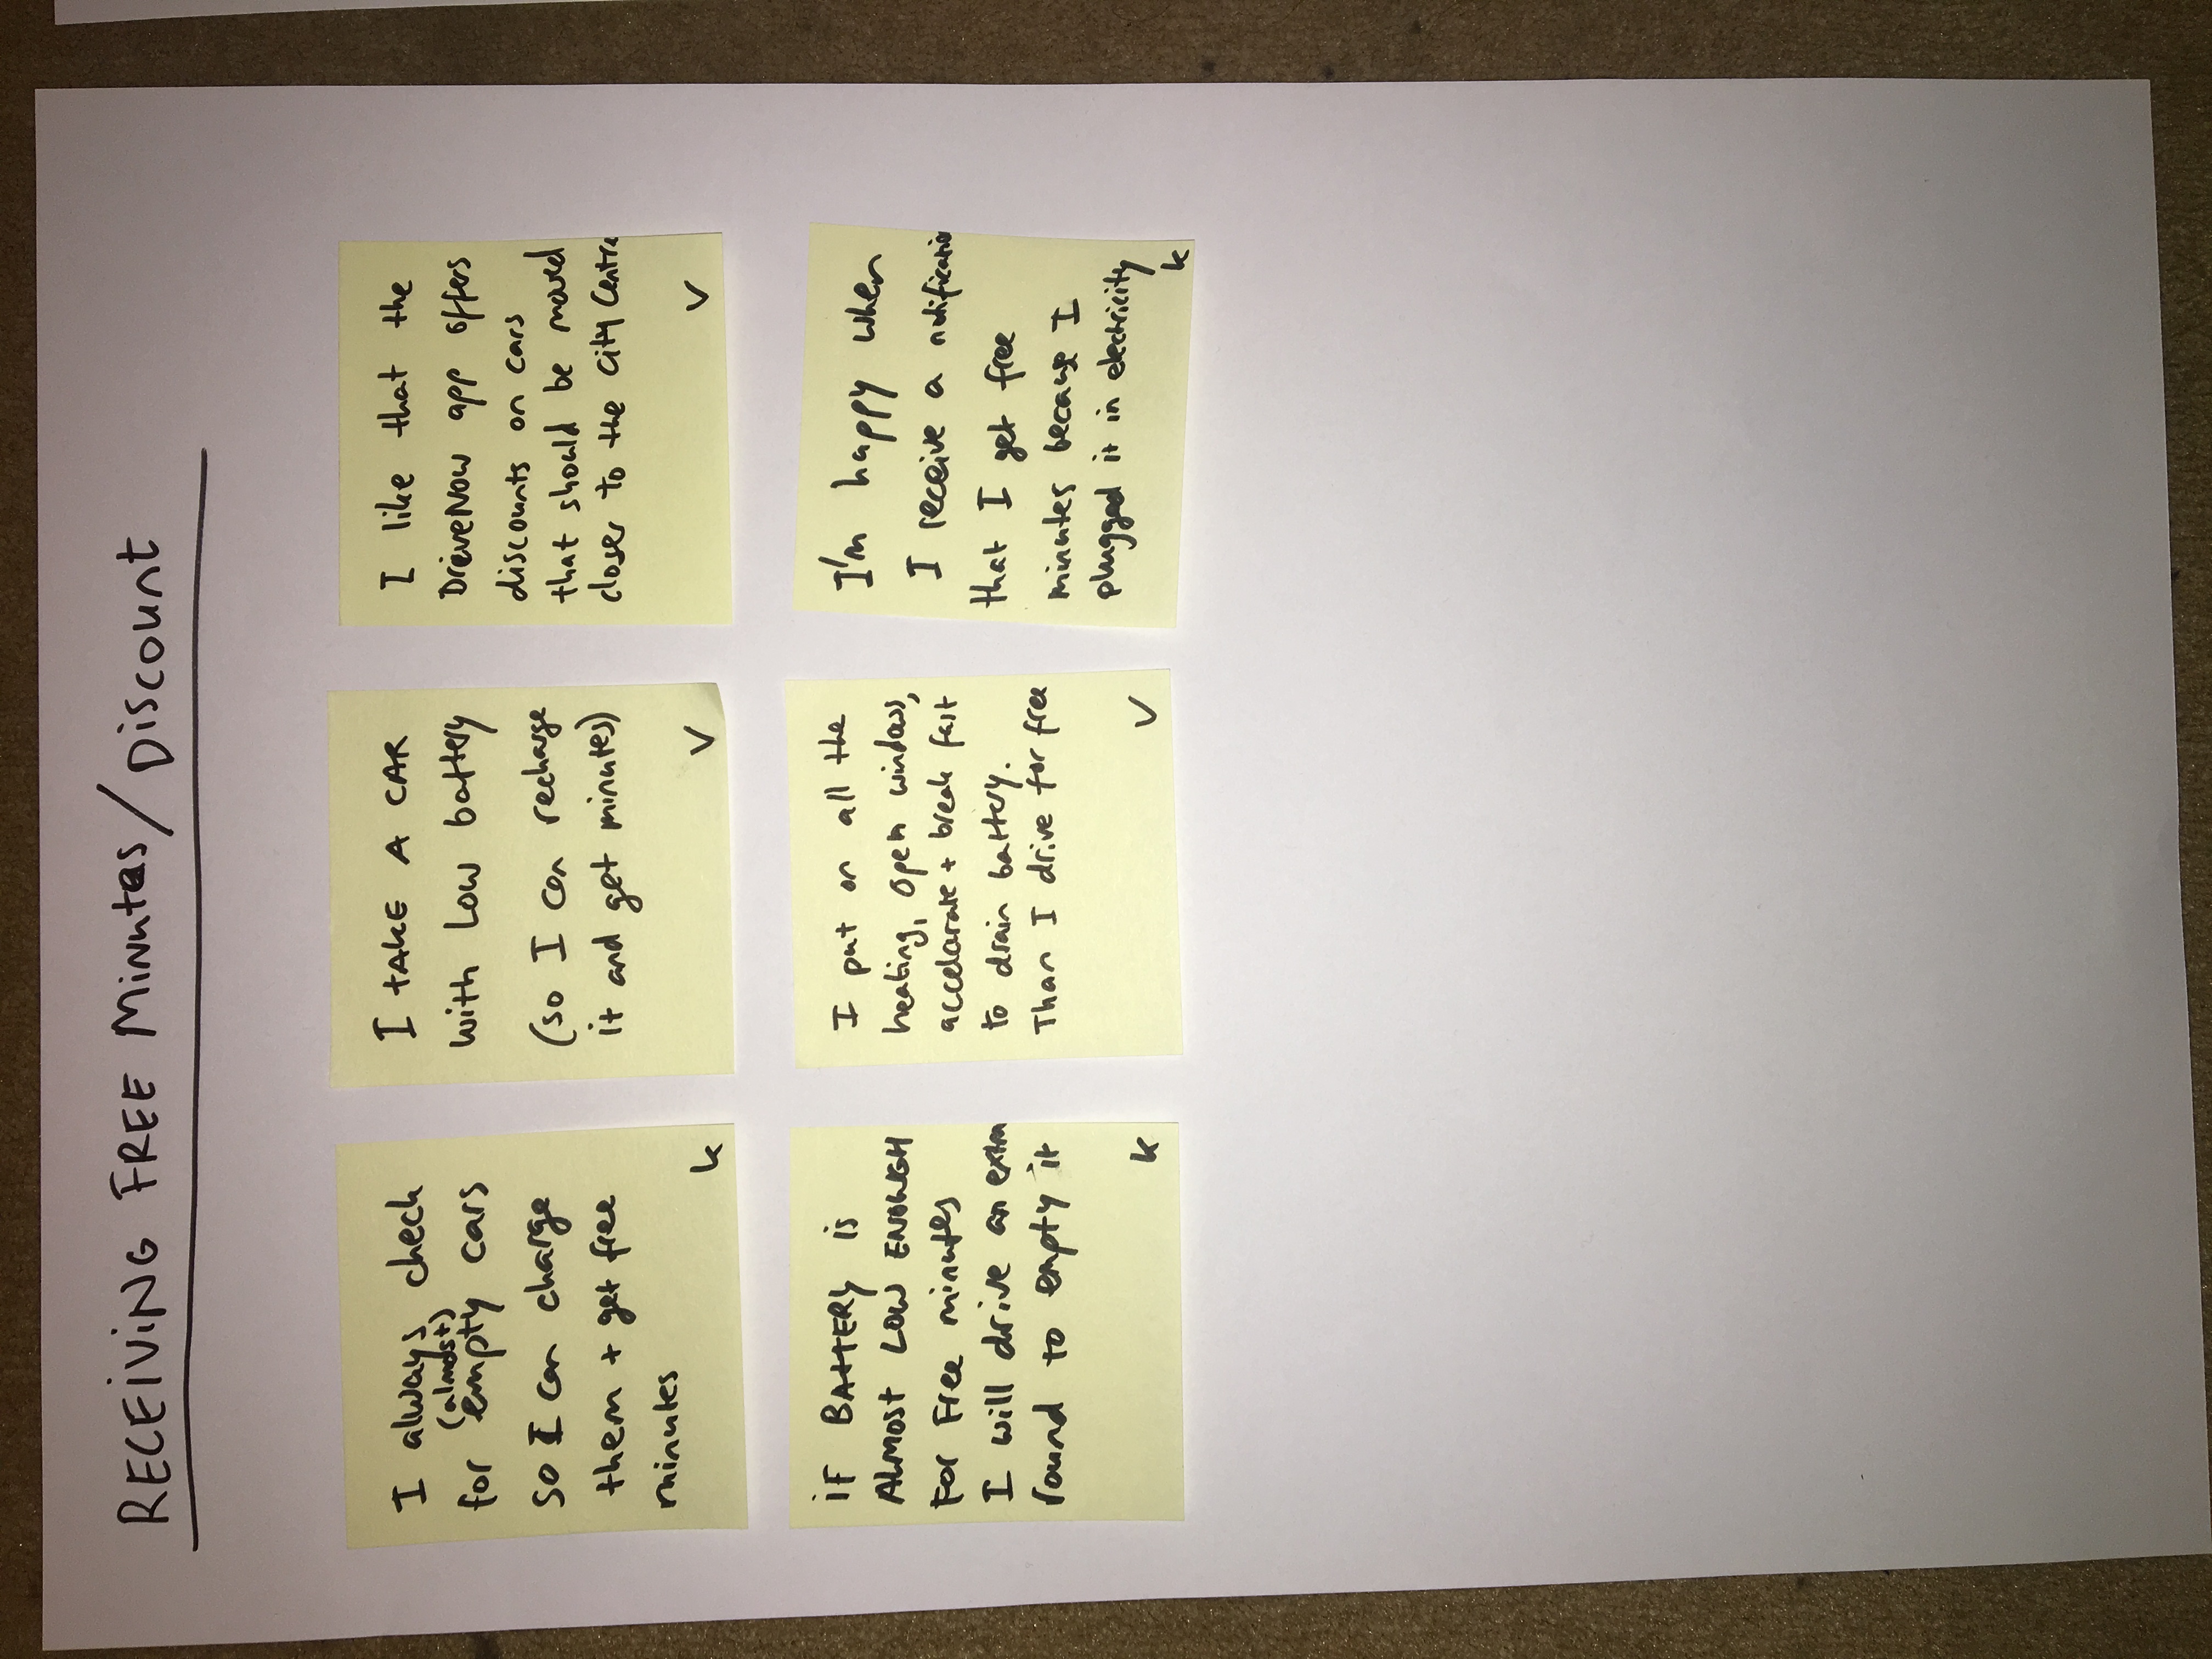 RECEIVING FREE Minutes/Discount
I always check
(almost)
for empty cars
so I can charge
them + get free
minutes
k
I TAKE A CAR
with Low battery
(so I can recharge
it and get minutes)
V
I like that the
DriveNow app offers
discounts on cars
that should be moved
closer to the city Centre
V
iF BATTERY is
ALMOST LOW ENOUGH
For Free minutes
I will drive an extra
round to empty it
k
I put on all the
heating, open windows,
accelarate + break fast
to drain battery.
Than I drive for free
V
I'm happy when
I receive a notification
that I get free
minutes because I
plugged it in electricity
k